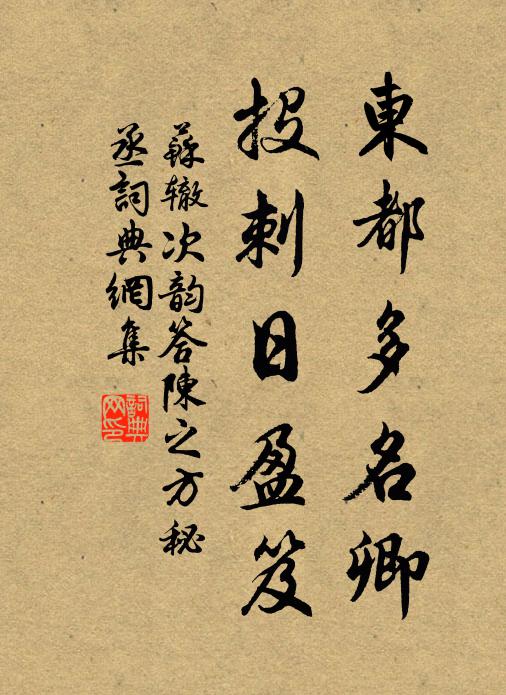 東都多名卿
投刺日盈笈
蘇辙次韵答陳之方秘
丞詞典網集
詞典网印